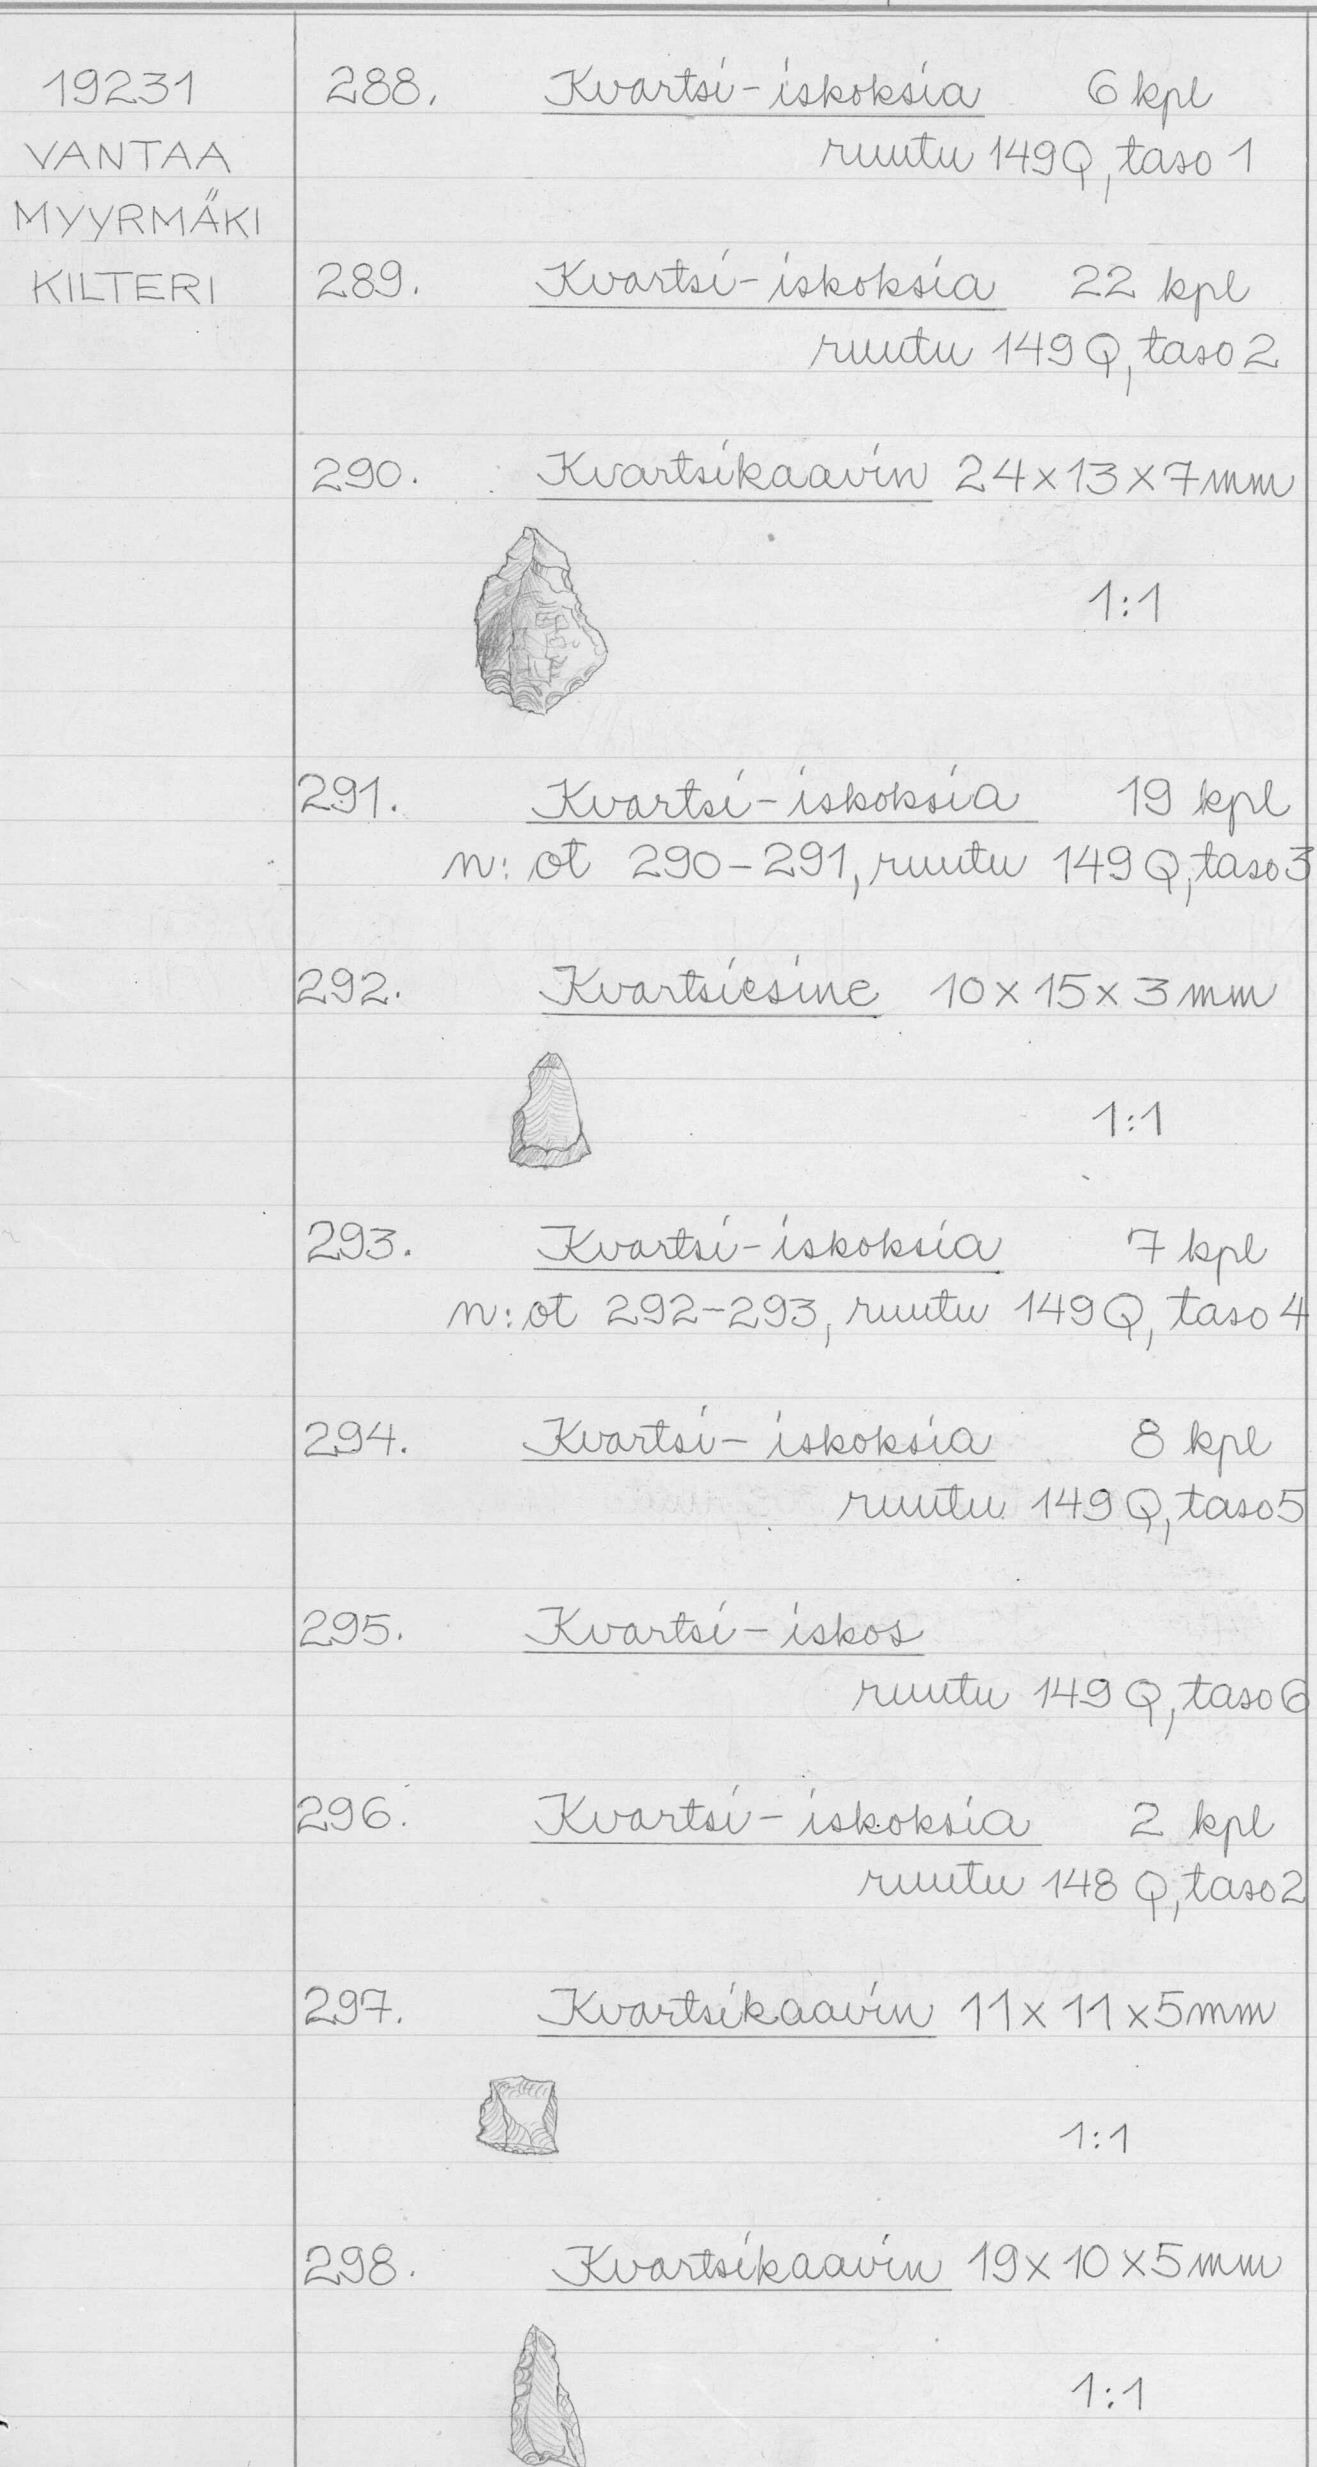 19231
VANTAA
MYYRMÄKI
KILTERI
288. Kvartsi-iskoksia 6 kpl
ruutu 149Q, taso 1
289. Kvartsi-iskoksia 22 kpl
ruutu 149Q, taso 2
290. Kvartsikaavin 24x13x7mm
1:1
291. Kvartsi-iskoksia 19 kpl
n:ot 290-291, ruutu 149Q, taso 3
292. Kvartsiesine 10x15x3mm
1:1
293. Kvartsi-iskoksia 7 kpl
n:ot 292-293, ruutu 149Q, taso 4
294. Kvartsi-iskoksia 8 kpl
ruutu 149Q, taso 5
295. Kvartsi-iskos
ruutu 149Q, taso 6
296. Kvartsi-iskoksia 2 kpl
ruutu 148Q, taso 2
297. Kvartsikaavin 11x11x5mm
1:1
298. Kvartsikaavin 19x10x5mm
1:1